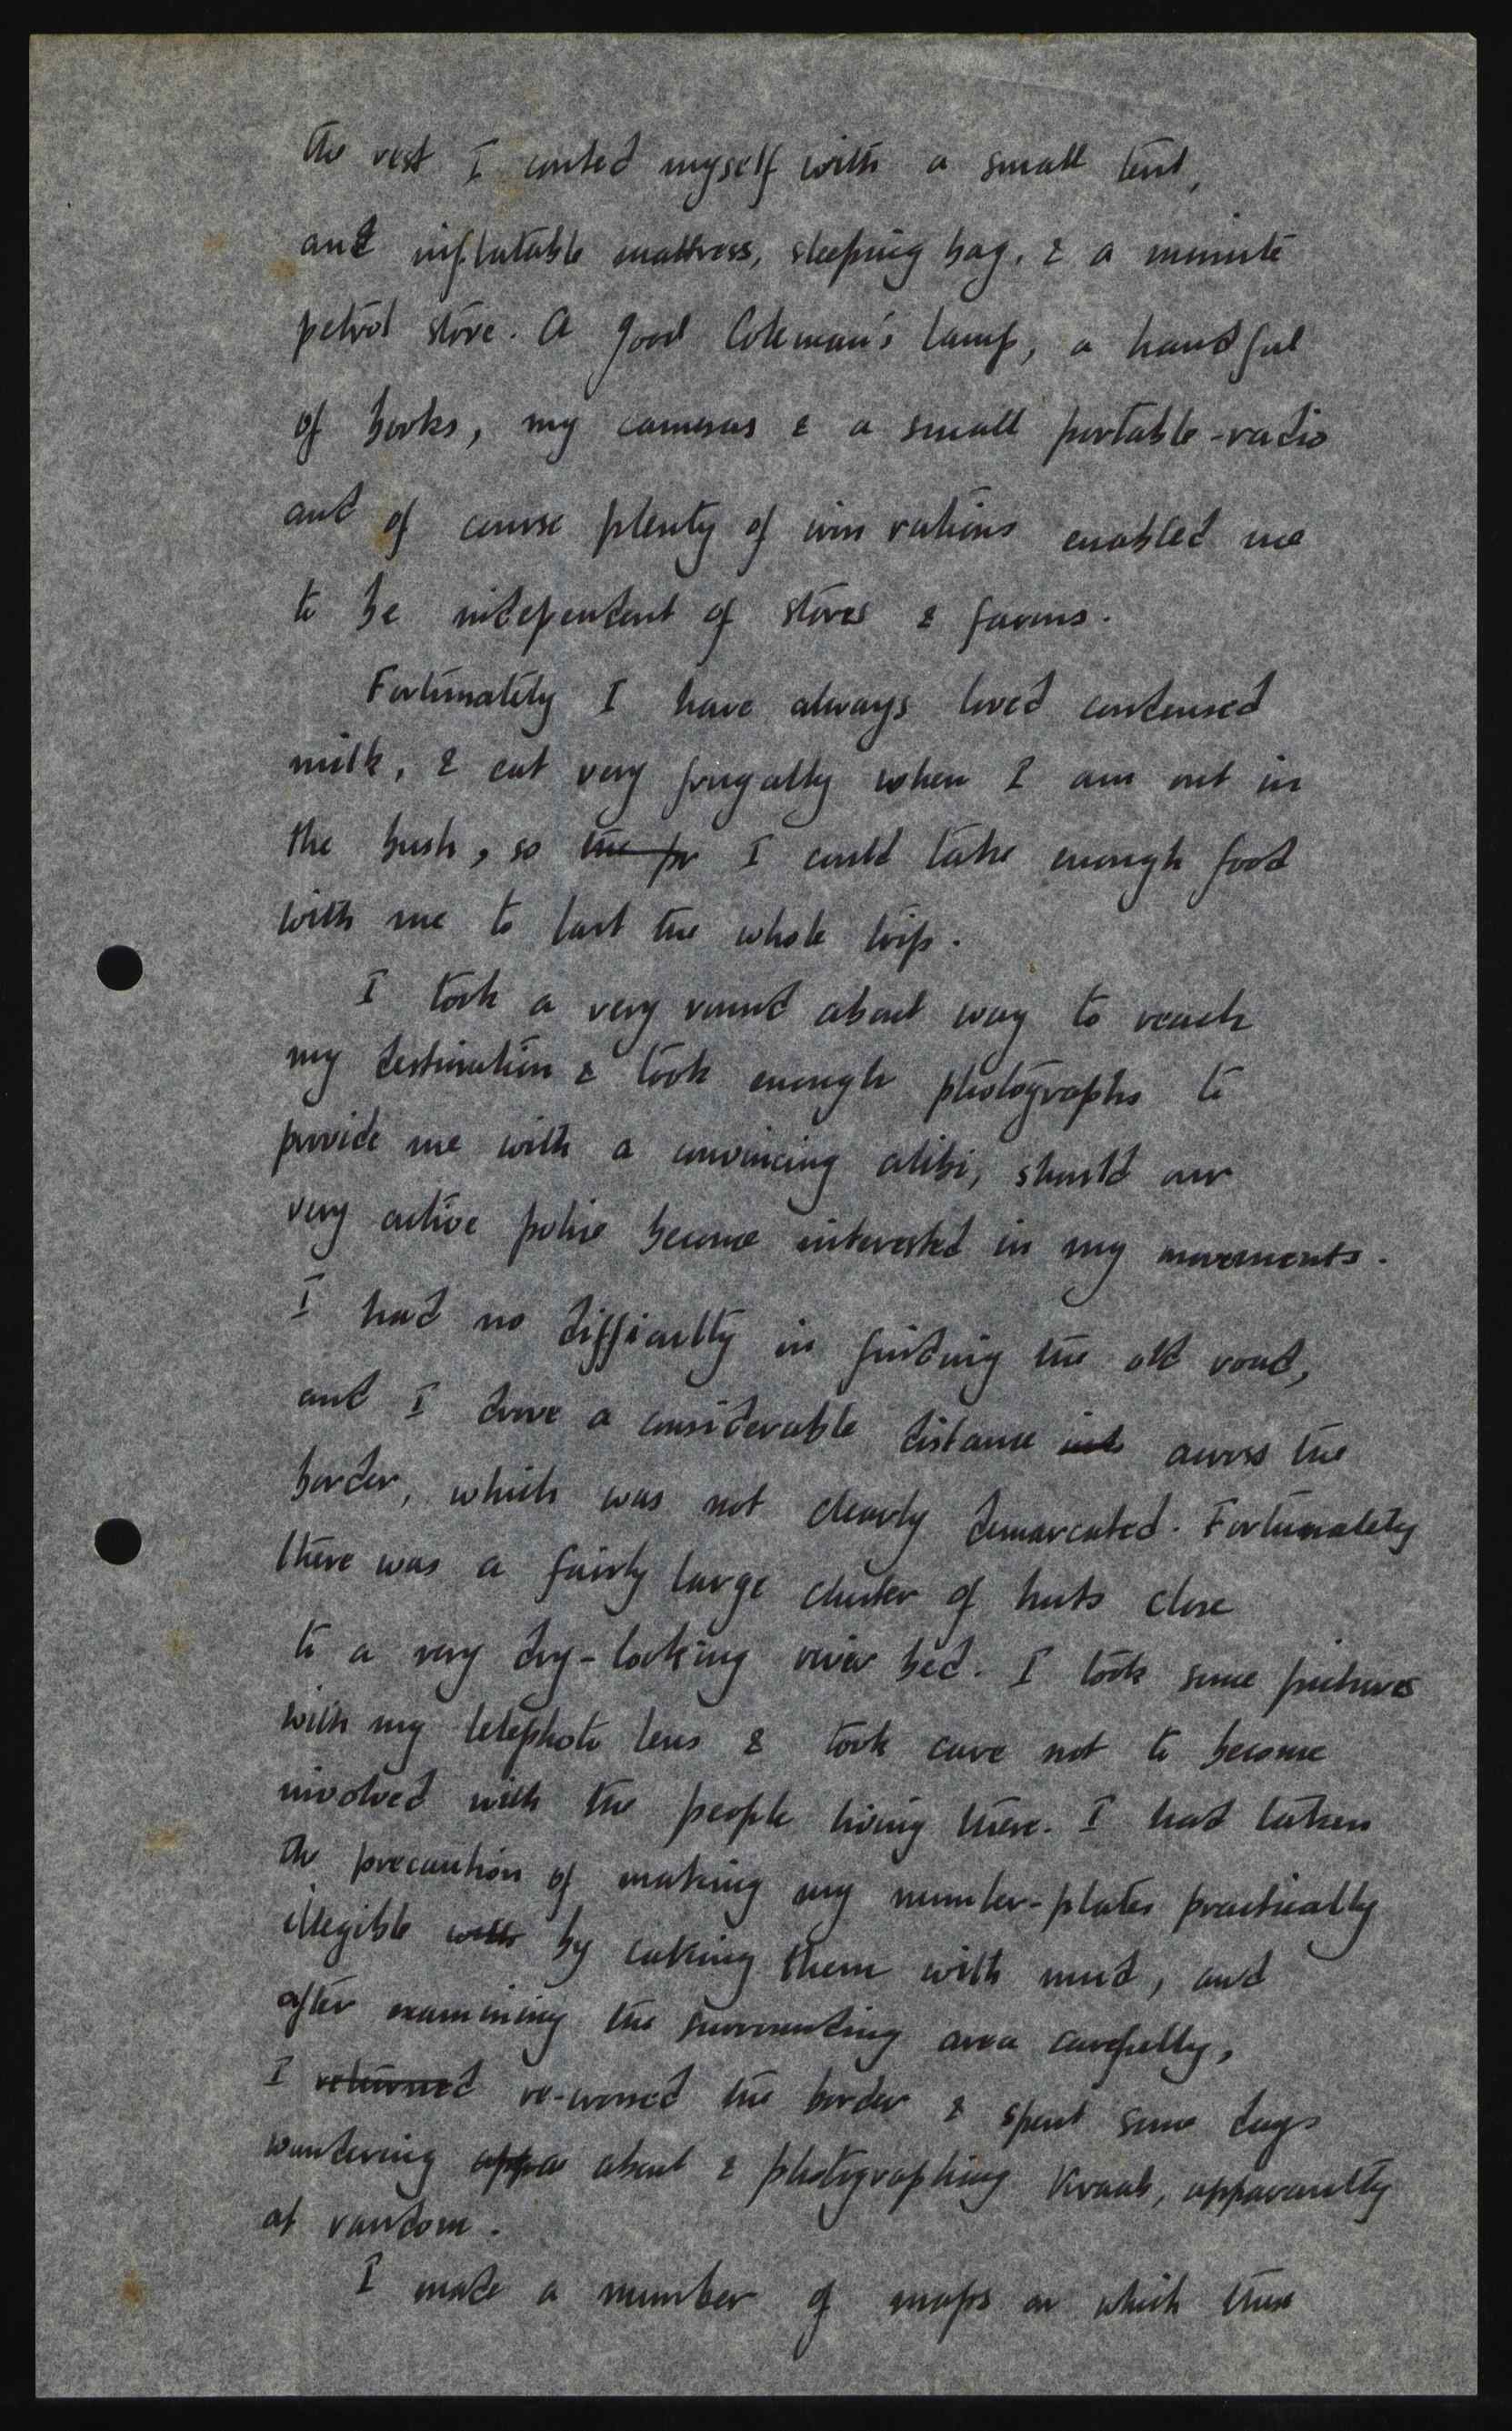 the rest I conted myself with a small tent,
and inflatable mattress, sleeping bag, & a minute
petrol stove. A good Coleman's lamp, a handful
of books, my cameras & a small portable-radio
and of course plenty of iron rations enabled me
to be independent of stores & farms.
Fortunately I have always loved condensed
milk, & eat very frugally when I am out in
the bush, so the pr I could take enough food
with me to last the whole trip.
I took a very round about way to reach
my destination & took enough photographs to
provide me with a convincing alibi, should our
very active police become interested in my movements.
I had no difficulty in finding the old road,
and I drove a considerable distance into across the
border, which was not clearly demarcated. Fortunately
there was a fairly large cluster of huts close
to a very dry-looking river bed. I took some pictures
with my telephoto lens & took care not to become
involved with the people living there. I had taken
the precaution of making my number-plates practically
illegible with by caking them with mud, and
after examining the surrounding area carefully,
I returned re-crossed the border & spent some days
wandering appa about & photographing Kraals, apparantly
at random.
I made a number of maps on which these